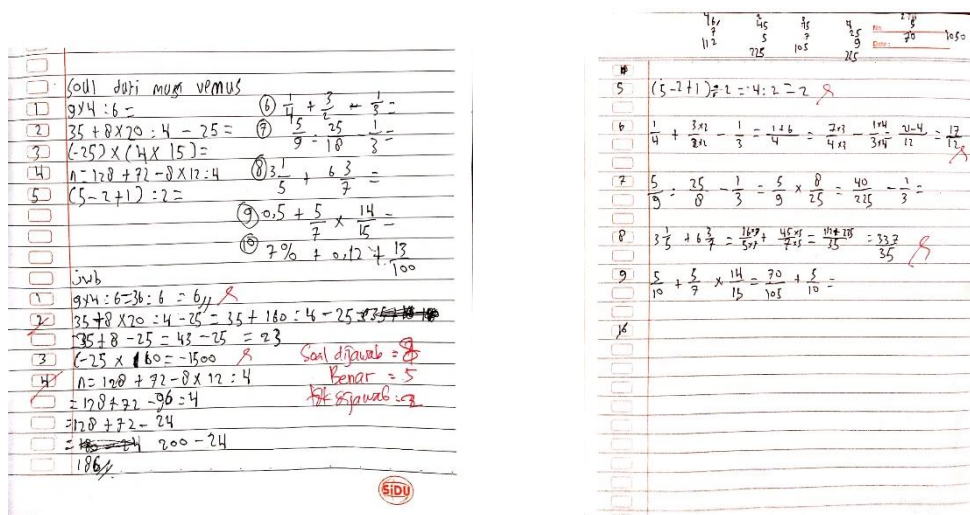 Soal dari mum venus
1 9x4 : 6 =
2 35 + 8 x 20 : 4 - 25 =
3 (-25) x (4 x 15) =
4 n = 128 + 72 - 8 x 12 : 4
5 (5 - 2 + 1) : 2 =
6 1/4 + 3/2 - 1/3 =
7 5/9 : 25/18 - 1/3 =
8 3 1/5 + 6 3/7 =
9 0,5 + 5/7 x 14/15 =
10 7% + 0,12 + 13/100
jwb
1 9x4 : 6 = 36 : 6 = 6
2 35 + 8 x 20 : 4 - 25 = 35 + 160 : 4 - 25
35 + 8 - 25 = 43 - 25 = 23
3 (-25 x 60 = -1500
4 n = 128 + 72 - 8 x 12 : 4
= 128 + 72 - 96 : 4
= 128 + 72 - 24
= 200 - 24
186
Soal dijawab =
Benar = 5
SiDU
46 45 45 25
7 5 7 9 5
112 225 105 225 70 1050
No.
Date:
5 (5 - 2 + 1) : 2 = 4 : 2 = 2
6 1/4 + 3x2/2x2 - 1/3 = 1+6/4 = 7x3/4x3 - 1x4/3x4 = 21-4/12 = 17/12
7 5/9 : 25/8 - 1/3 = 5/9 x 8/25 = 40/225 - 1/3 =
8 3 1/5 + 6 3/7 = 16x7/5x7 + 45x5/7x5 = 112+225/35 = 337/35
9 5/10 + 5/7 x 14/15 = 70/105 + 5/10 =